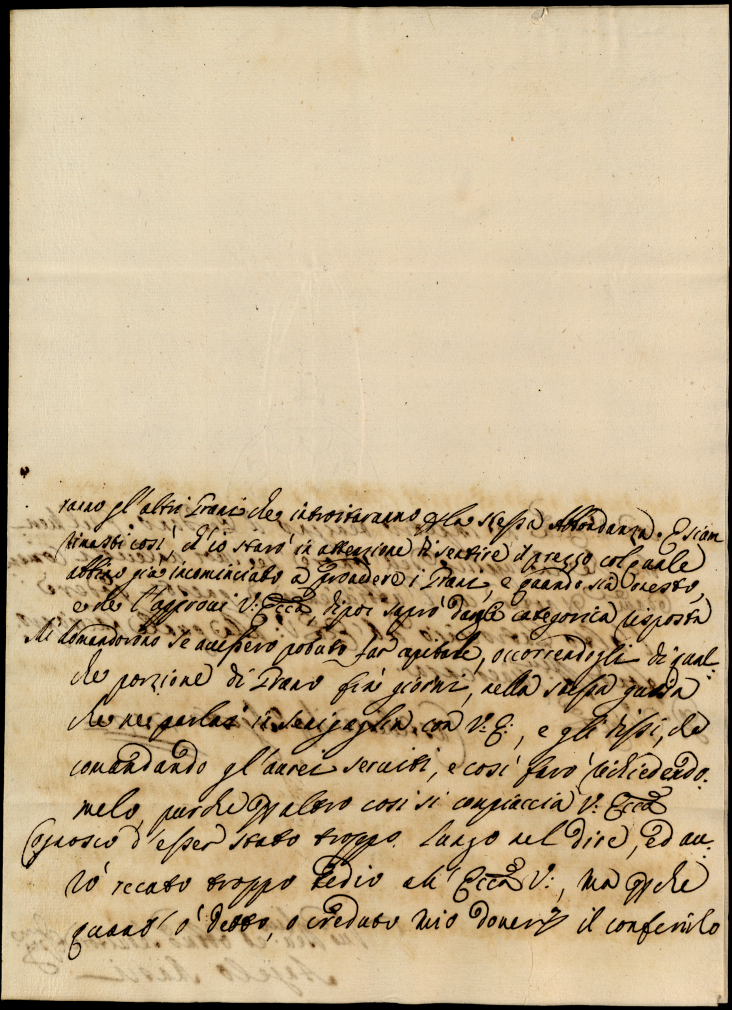 ranno gl'altri Grani che introiteranno p la stessa Abbondanza. E siam
rimasti così, ch'io starò in attenzione di sentire il prezzo col quale
abbino già incominciato a prendere i Grani, e quando sia onesto,
e che l'approvi V: Ecca, di poi saprò dargli categorica risposta
Mi domandorono se avessero potuto far capitale, occorrendogli di qual:
che porzione di Grano frà giorni, nella stessa guisa
che ne parlai in Senigaglia con V: E:, e gli dissi, che
comandando gl'averei serviti, e così farò richiedendo:
melo, purche p altro così si compiaccia V: Ecca
Cognosco d'esser stato troppo lungo nel dire, ed av:
rò recato troppo tedio all'Ecca V:, ma p che
quant'ò detto, ò creduto mio dovere il conferirlo